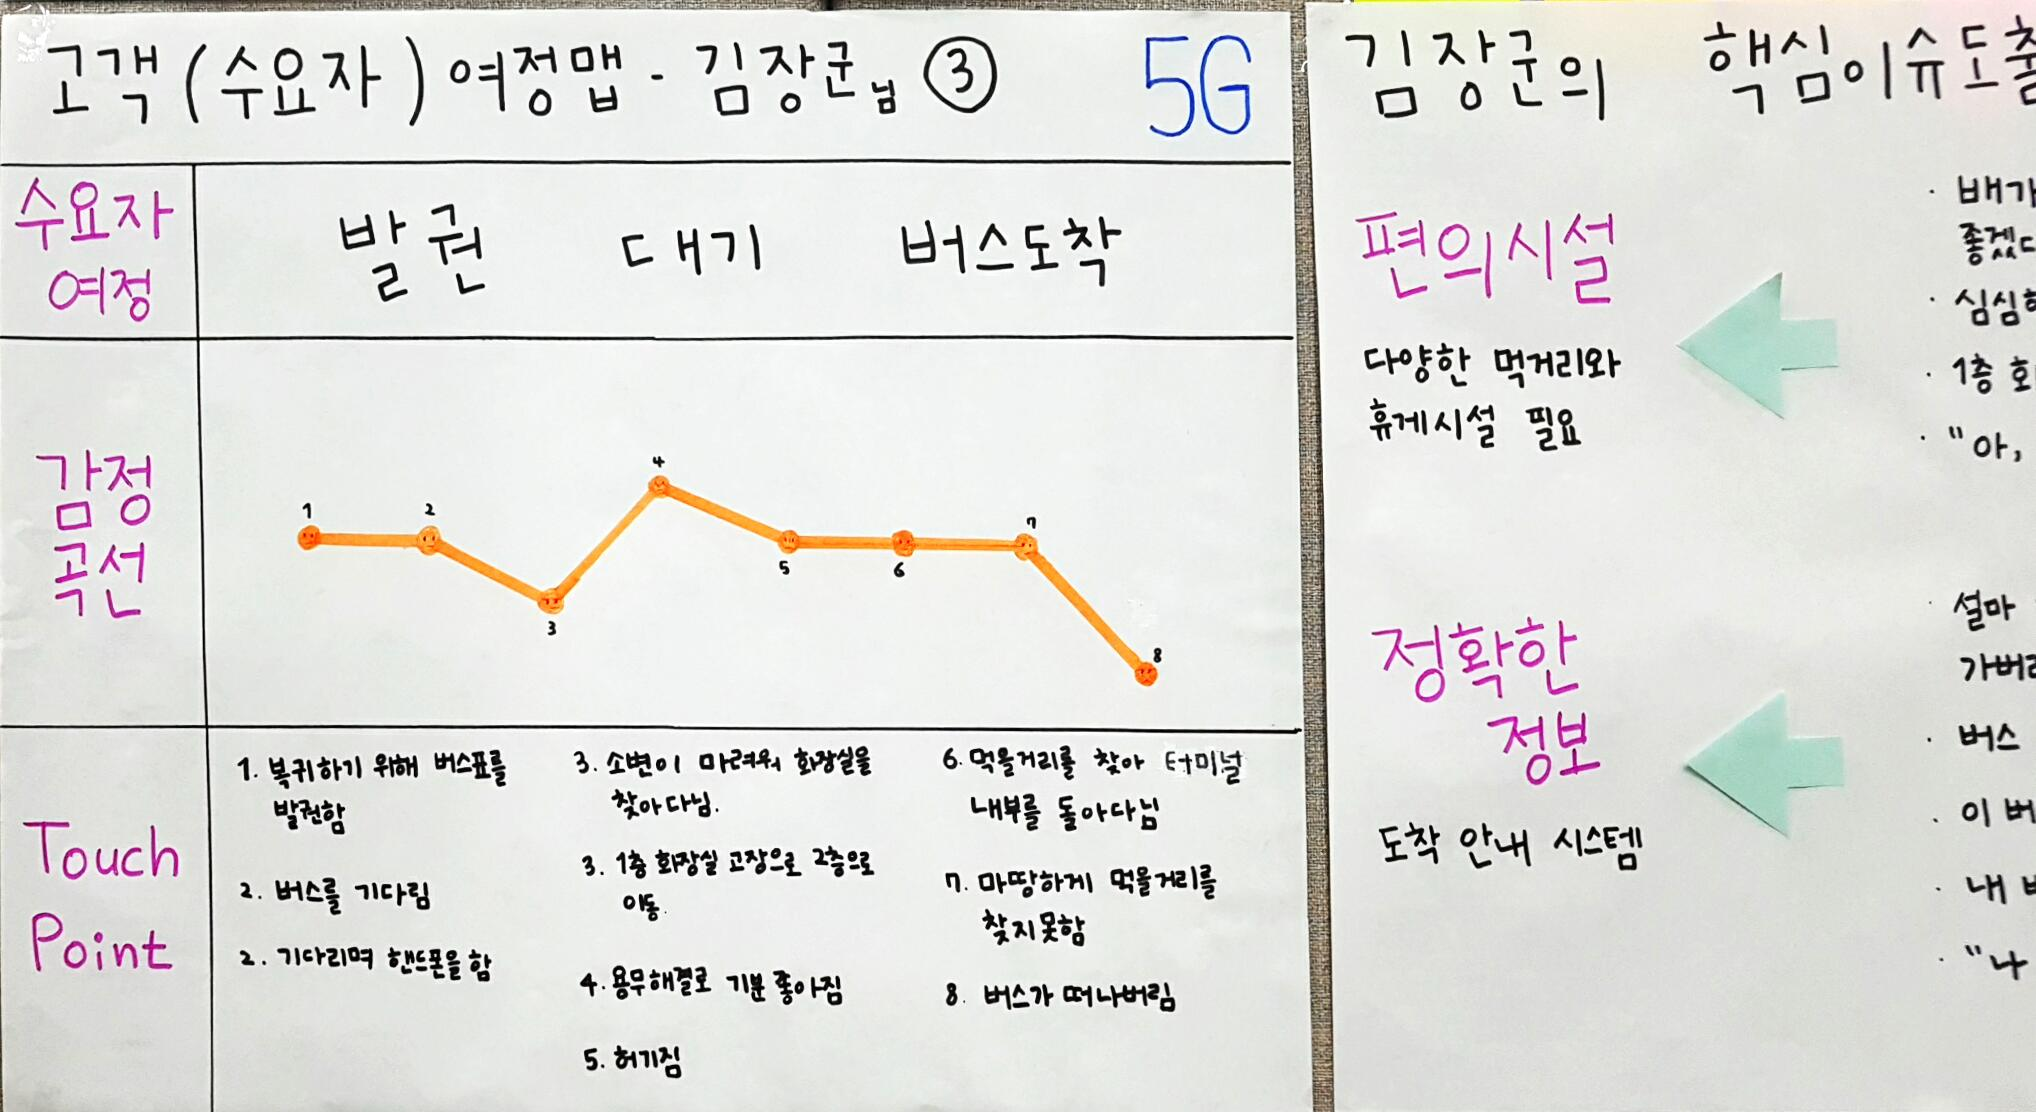 고객(수요자) 여정맵 - 김장군님 ③
5G
수요자
여정
발권 대기 버스도착
감정
곡선
1
2
3
4
5
6
7
8
Touch
Point
1. 복귀하기 위해 버스표를
발권함
2. 버스를 기다림
2. 기다리며 핸드폰을 함
3. 소변이 마려워 화장실을
찾아다님.
3. 1층 화장실 고장으로 2층으로
이동.
4. 용무해결로 기분 좋아짐
5. 허기짐
6. 먹을거리를 찾아 터미널
내부를 돌아다님
7. 마땅하게 먹을거리를
찾지못함
8. 버스가 떠나버림
김장군의 핵심이슈도출
편의시설
다양한 먹거리와
휴게시설 필요
· 배가
좋겠다
· 심심하
· 1층 화
· "아,
정확한
정보
도착 안내 시스템
· 설마
가버리
· 버스
· 이 버
· 내 버
· "나